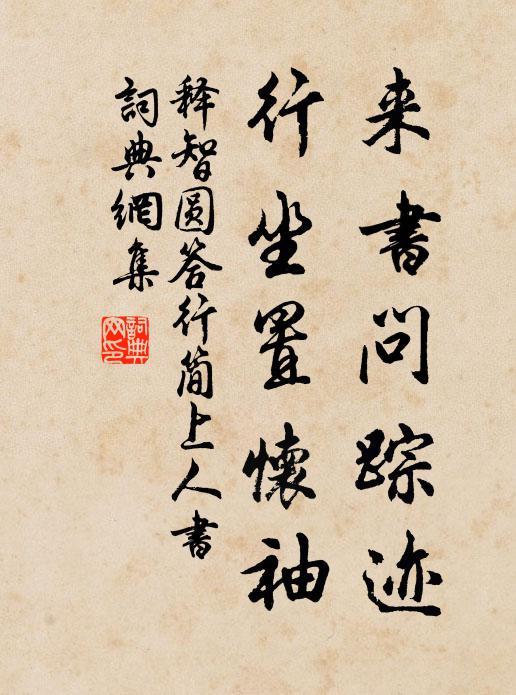 来書問踪迹
行坐置懷袖
释智圆答行简上人書
詞典網集
詞典網印